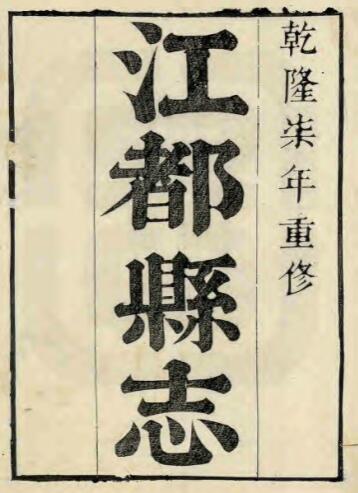 乾隆柒年重修
江都縣志